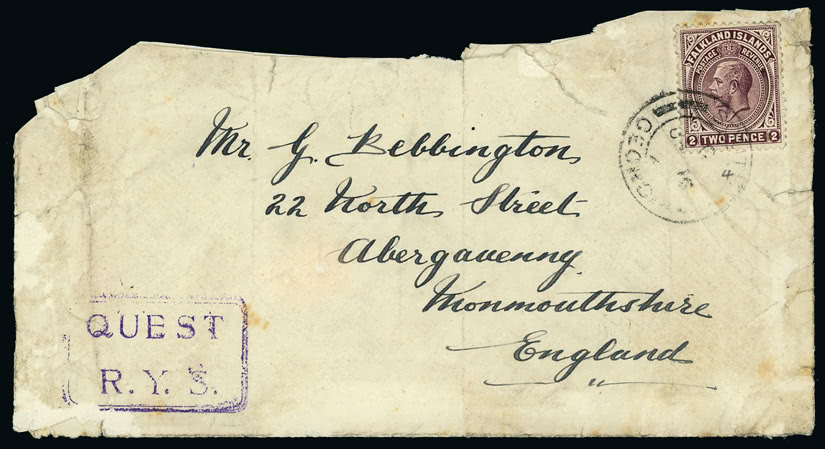 FALKLAND ISLANDS
POSTAGE REVENUE
2 TWO PENCE 2
Mr. G. Bebbington
22 North Street
Abergavenny
Monmouthshire
England
QUEST
R.Y.S.